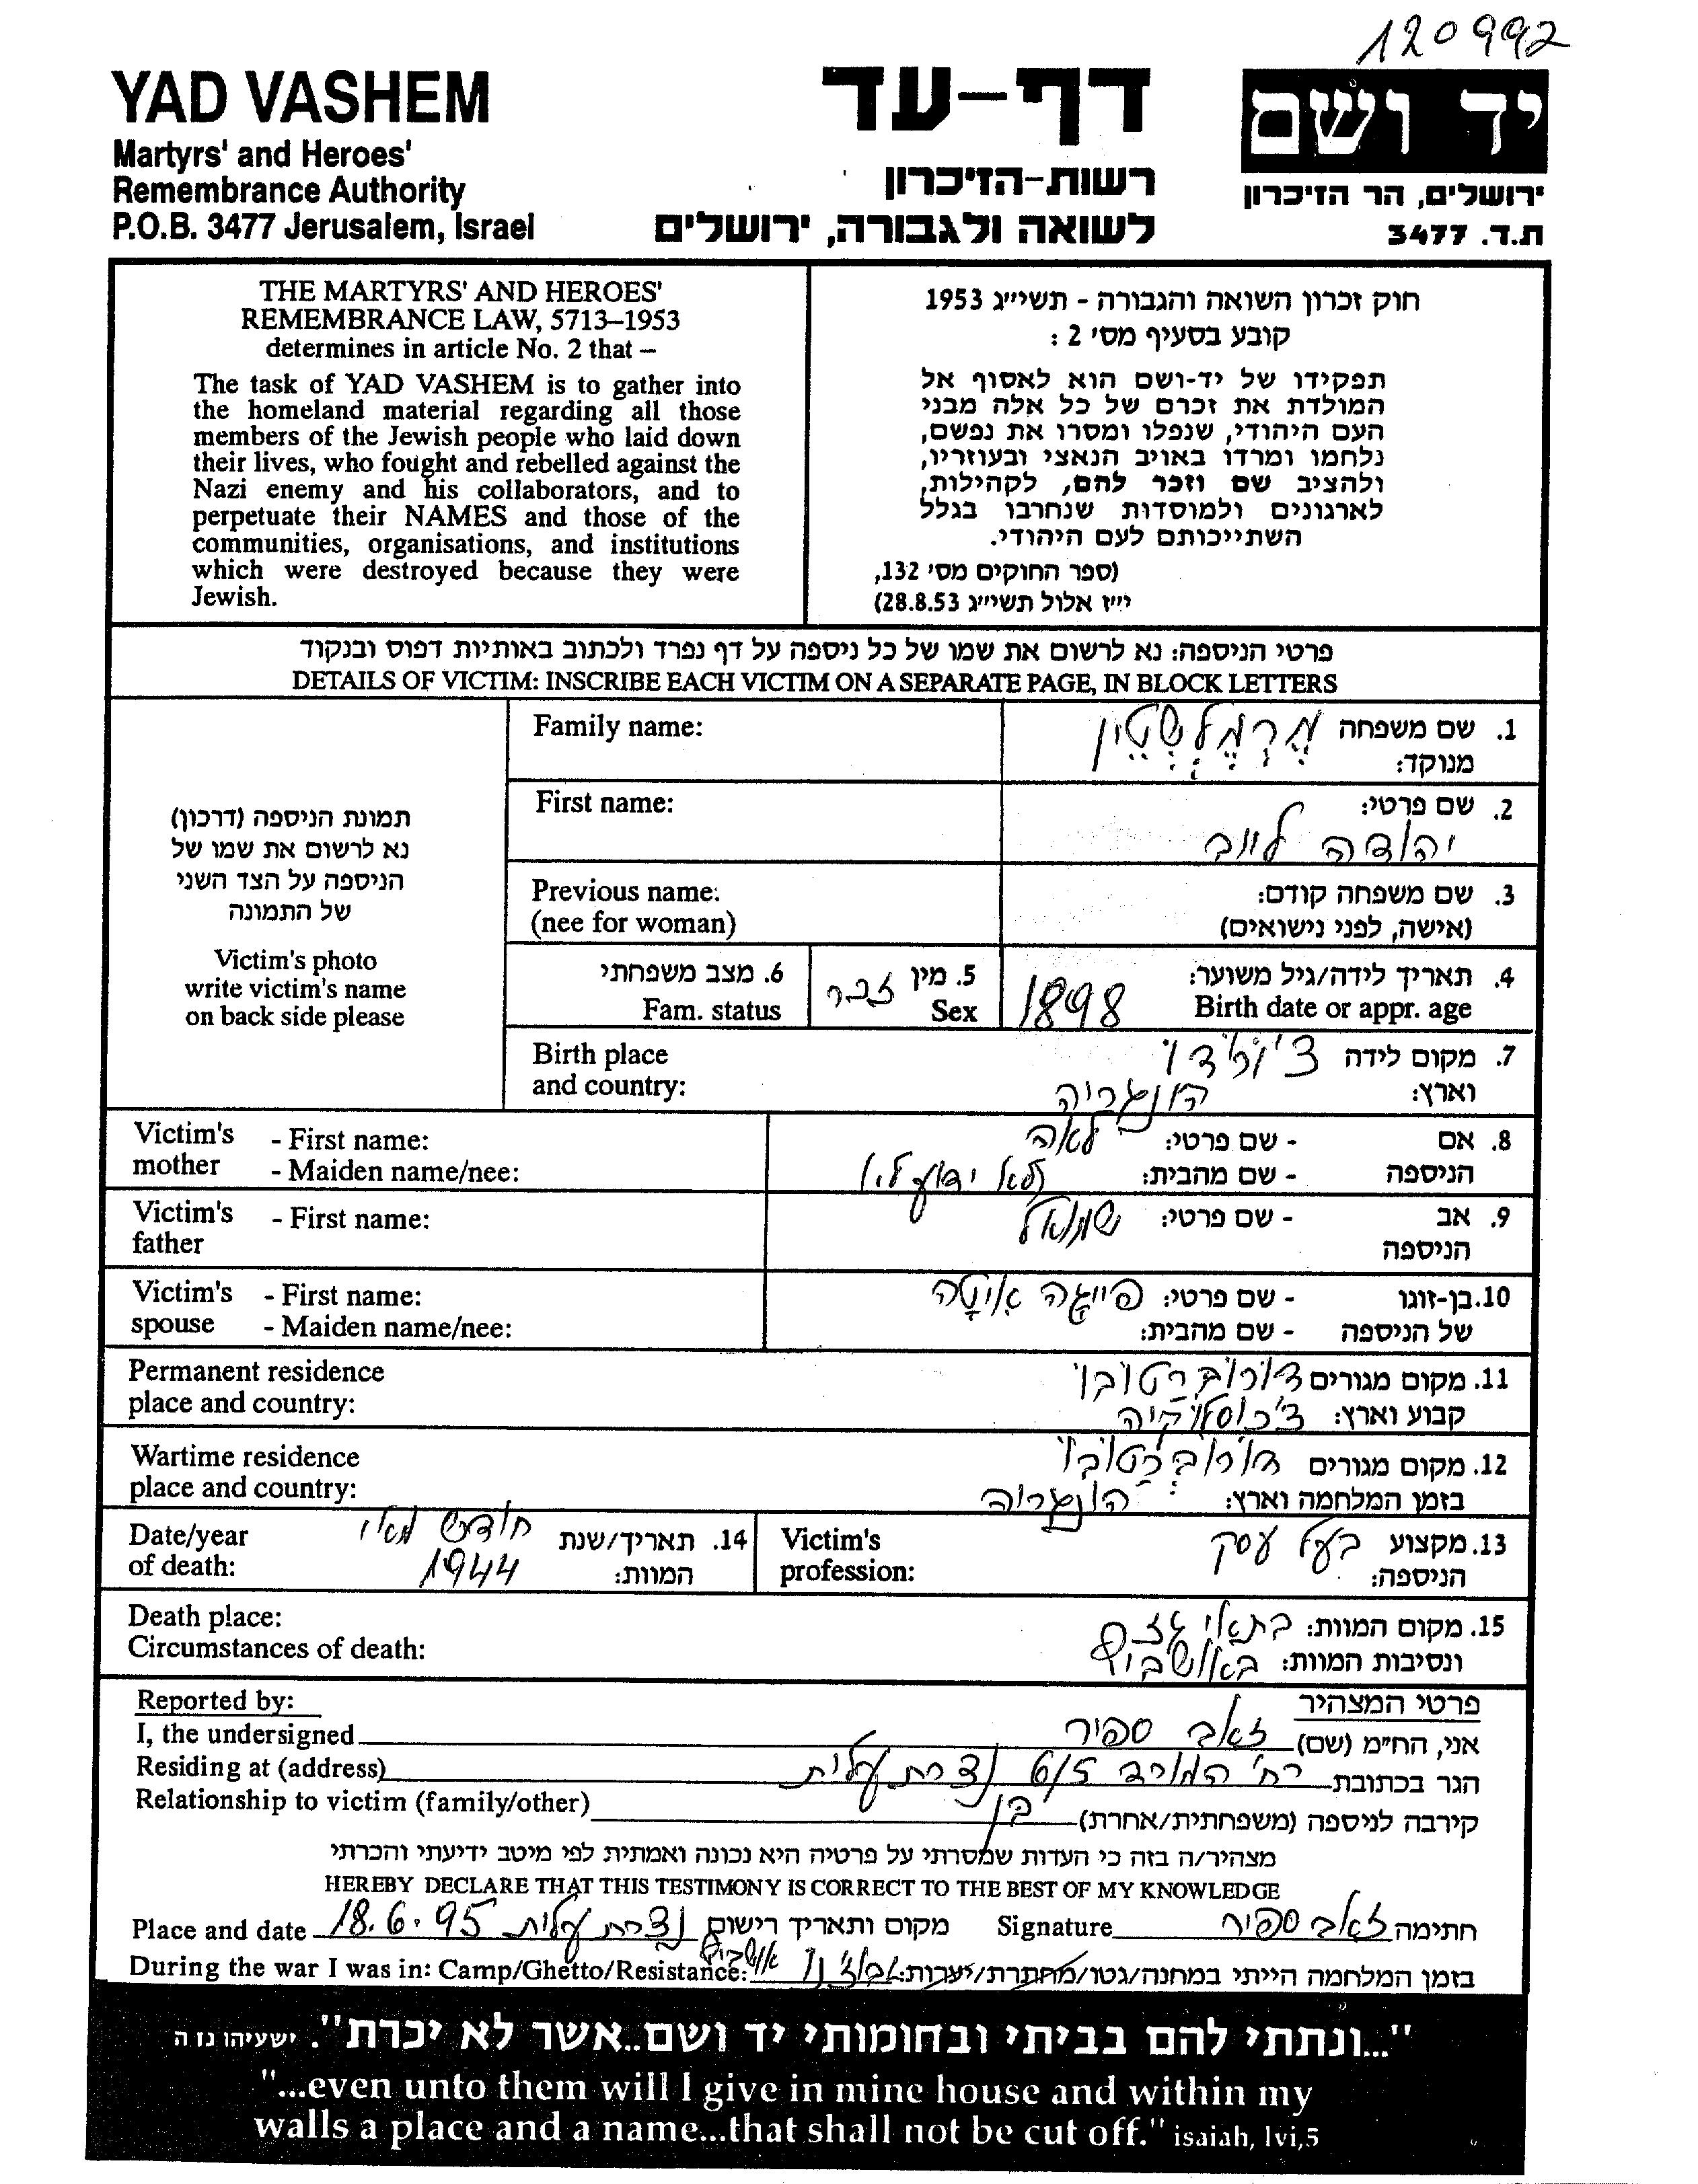 120992
YAD VASHEM
Martyrs' and Heroes'
Remembrance Authority
P.O.B. 3477 Jerusalem, Israel
דף-עד
רשות-הזיכרון
לשואה ולגבורה, ירושלים
יד ושם
ירושלים, הר הזיכרון
ת.ד. 3477
THE MARTYRS' AND HEROES'
REMEMBRANCE LAW, 5713–1953
determines in article No. 2 that –
The task of YAD VASHEM is to gather into
the homeland material regarding all those
members of the Jewish people who laid down
their lives, who fought and rebelled against the
Nazi enemy and his collaborators, and to
perpetuate their NAMES and those of the
communities, organisations, and institutions
which were destroyed because they were
Jewish.
חוק זכרון השואה והגבורה - תשי״ג 1953
קובע בסעיף מס׳ 2 :
תפקידו של יד-ושם הוא לאסוף אל
המולדת את זכרם של כל אלה מבני
העם היהודי, שנפלו ומסרו את נפשם,
נלחמו ומרדו באויב הנאצי ובעוזריו,
ולהציב שם וזכר להם, לקהילות,
לארגונים ולמוסדות שנחרבו בגלל
השתייכותם לעם היהודי.
(ספר החוקים מס׳ 132,
י״ז אלול תשי״ג 28.8.53)
פרטי הניספה: נא לרשום את שמו של כל ניספה על דף נפרד ולכתוב באותיות דפוס ובנקוד
DETAILS OF VICTIM: INSCRIBE EACH VICTIM ON A SEPARATE PAGE, IN BLOCK LETTERS
תמונת הניספה (דרכון)
נא לרשום את שמו של
הניספה על הצד השני
של התמונה
Victim's photo
write victim's name
on back side please
Family name:
1. שם משפחה מרמלשטיין
מנוקד:
First name:
2. שם פרטי:
יהודה לייב
Previous name:
(nee for woman)
3. שם משפחה קודם:
(אישה, לפני נישואים)
4. תאריך לידה/גיל משוער:
Birth date or appr. age
1898
5. מין זכר
Sex
6. מצב משפחתי
Fam. status
Birth place
and country:
7. מקום לידה
וארץ: הונגריה
Victim's mother
- First name:
- Maiden name/nee:
8. אם הניספה
- שם פרטי: לאה
- שם מהבית: (לא ידוע לי)
Victim's father
- First name:
9. אב הניספה
- שם פרטי: שמואל
Victim's spouse
- First name:
- Maiden name/nee:
10. בן-זוגו של הניספה
- שם פרטי: פייגה איטה
- שם מהבית:
Permanent residence
place and country:
11. מקום מגורים
קבוע וארץ: צ'כוסלוקיה
Wartime residence
place and country:
12. מקום מגורים
בזמן המלחמה וארץ: הונגריה
Date/year
of death:
14. תאריך/שנת חודש מאי
המוות: 1944
Victim's
profession:
13. מקצוע בעל עסק
הניספה:
Death place:
Circumstances of death:
15. מקום המוות: בתאי גזים
ונסיבות המוות: באושביץ
Reported by:
I, the undersigned
Residing at (address)
Relationship to victim (family/other)
פרטי המצהיר
אני, הח״מ (שם) זאב ספיר
הגר בכתובת רח' הורד 6/5 נצרת עלית
קירבה לניספה (משפחתית/אחרת) בן
מצהיר/ה בזה כי העדות שמסרתי על פרטיה היא נכונה ואמתית לפי מיטב ידיעתי והכרתי
HEREBY DECLARE THAT THIS TESTIMONY IS CORRECT TO THE BEST OF MY KNOWLEDGE
Place and date 18.6.95 נצרת עלית מקום ותאריך רישום Signature זאב ספיר חתימה
During the war I was in: Camp/Ghetto/Resistance: אושביץ בזמן המלחמה הייתי במחנה/גטו/מחתרת/יערות:
"...ונתתי להם בביתי ובחומותי יד ושם..אשר לא יכרת". ישעיהו נז ה
"...even unto them will I give in mine house and within my
walls a place and a name...that shall not be cut off." isaiah, lvi,5